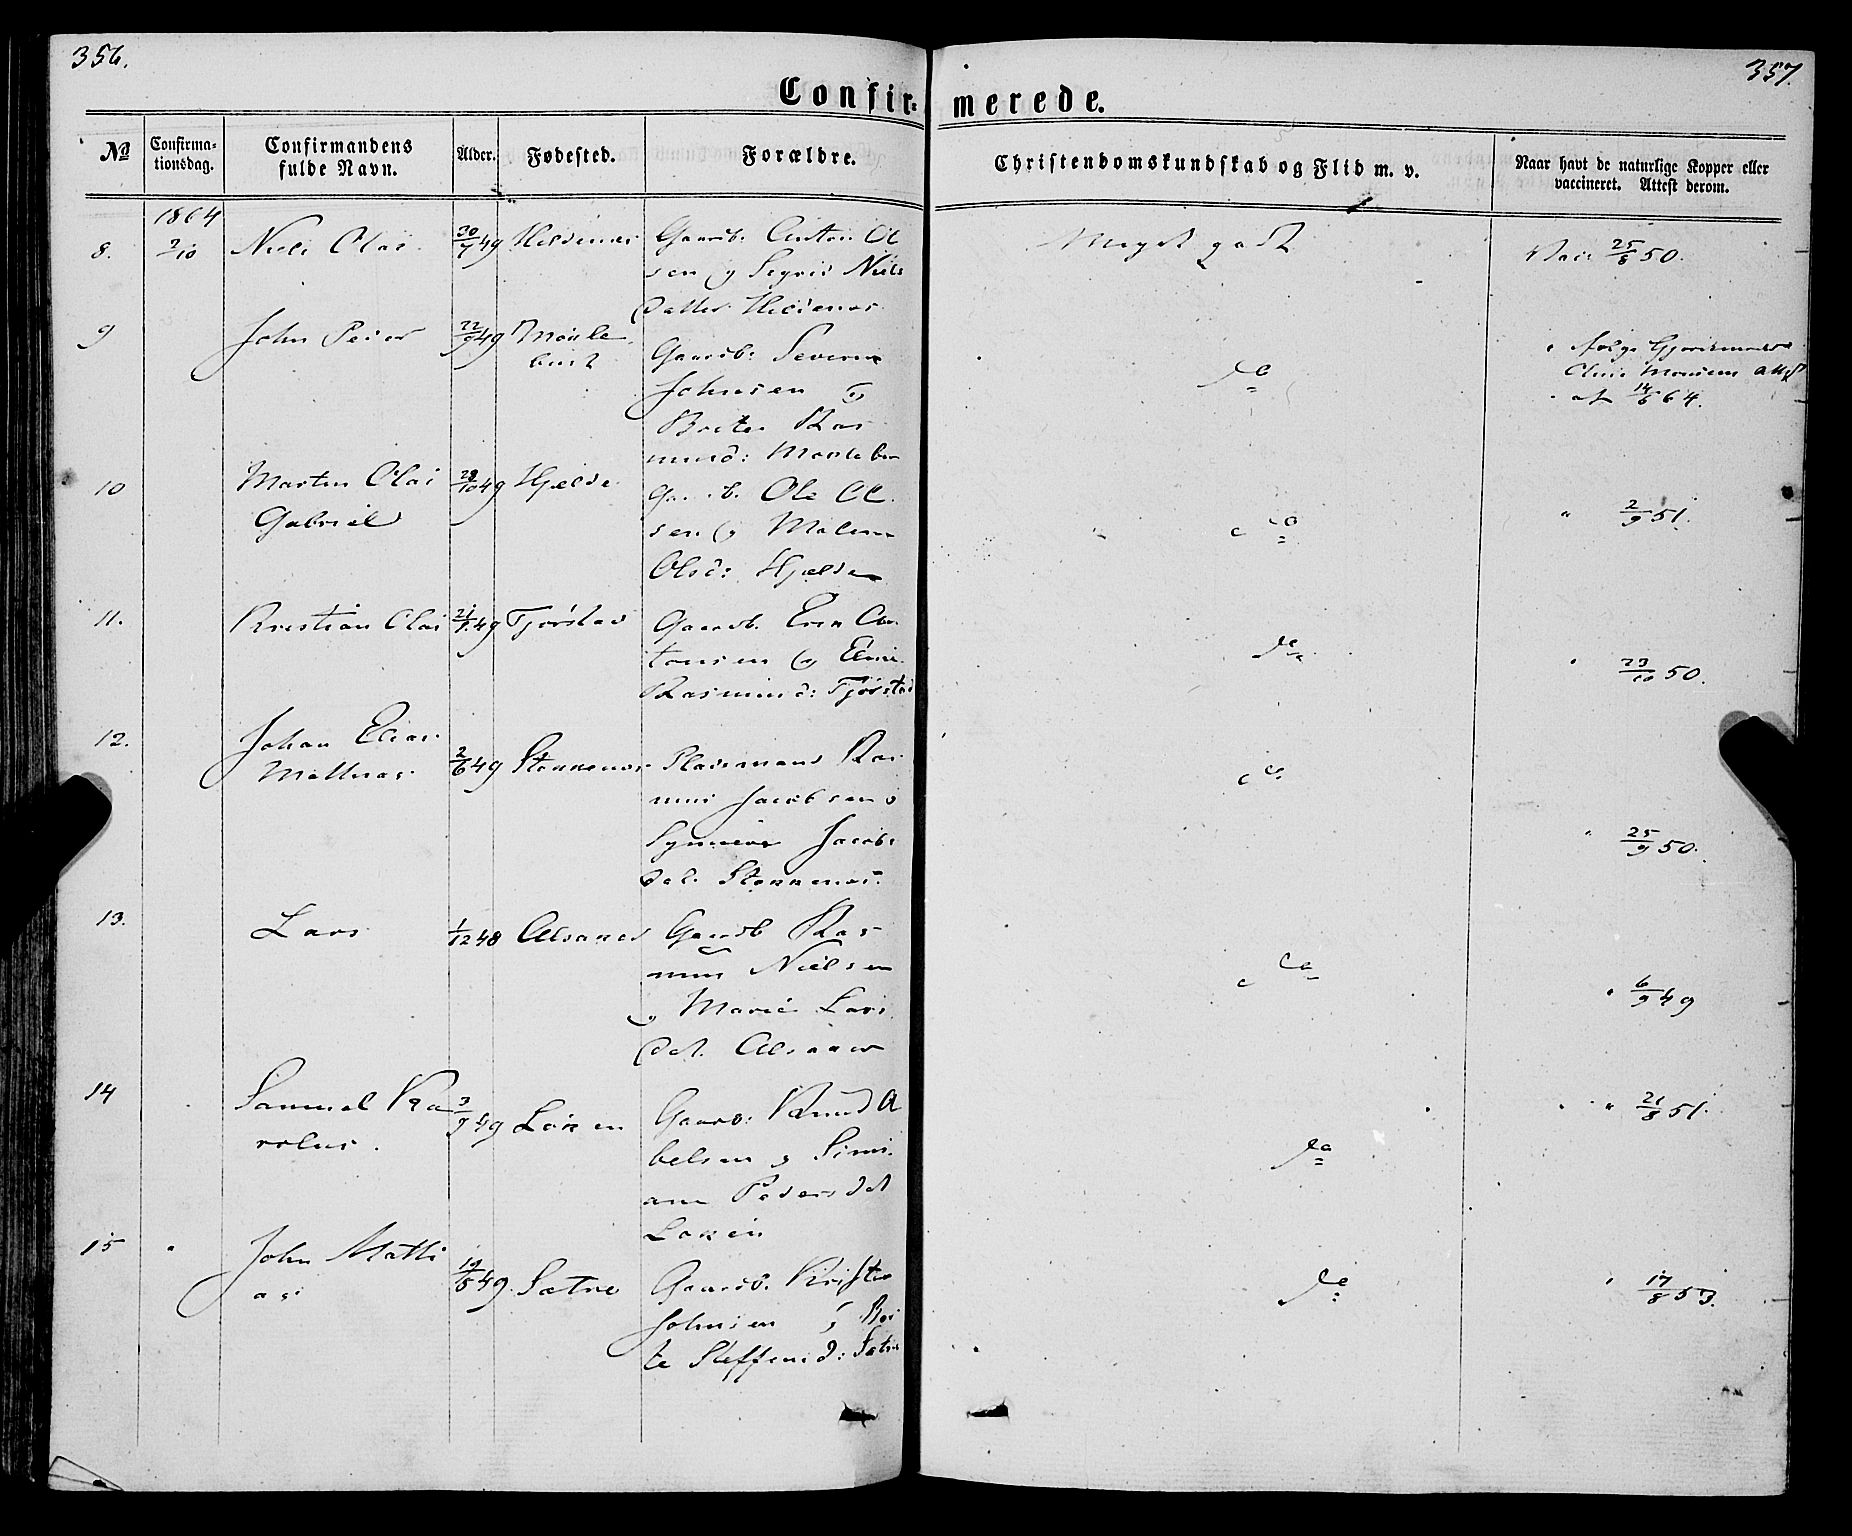 356.
357.
Confir-
merede.
No
Confirma-
tionsdag.
Confirmandens
fulde Navn.
Alder.
Fødested.
Forældre.
Christendomskundskab og Flid m. v.
Naar havt de naturlige Kopper eller
vaccineret. Attest derom.
1864
8. 2/10 Niels Olai 30/7 49 Gaardb. Anton Ol
sen og Sigrid Niels
datter
Meget godt
Vac. 25/8 50.
9 John Peder 22/9 49
Gaardb: Severin
Johnsen og
Brite Ras
munsd:
do
af 14/6 64.
10 Marten Olai
Gabriel 29/10 49 Hjelde Ole Ol
sen og Malene
Olsd: Hjelde
do
" 2/9 51.
11. Kristian Olai 21/7 49 Tjørstad Gaardb.
tonsen og
Rasmusd: Tjørstad
do
" 23/10 50.
12. Johan Elias
Mathias 2/6 49 Stennenes Pladsmand Ras
mus Jacobsen og
Synneve Jacobs
dat. Stennenes.
do
" 25/9 50.
13. Lars 1/12 48 Gaardb Ras
mus Nielsen
og Marie Lars
dat.
do
" 6/9 49
14 Samuel Ka
rolus. 3/9 49 Løken Gaardb: Knud A
belsen og Simi
ane Pedersdat
Løken
do
" 21/8 51.
15 " John Matti
as 19/5 49. Sætre Gaardb. Kristen
Johnsen og Bri
te Steffensd: Sætre
do
" 17/8 53.